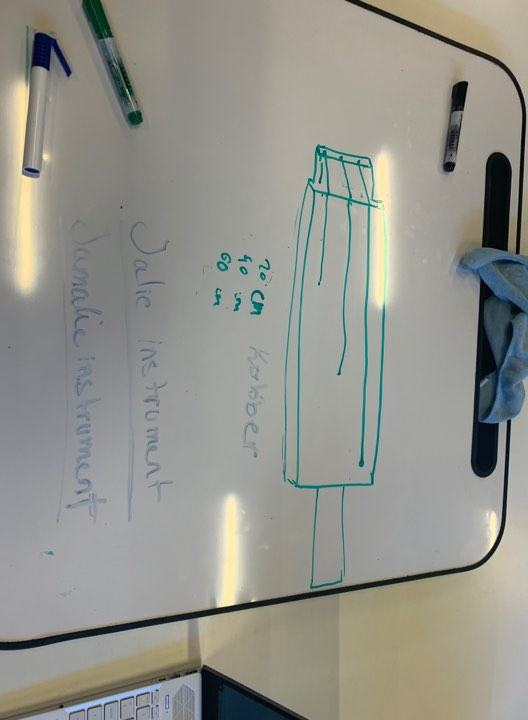 20 cm
40 cm
60 cm
Kobber
Jalic instrument
Jamalic instrument